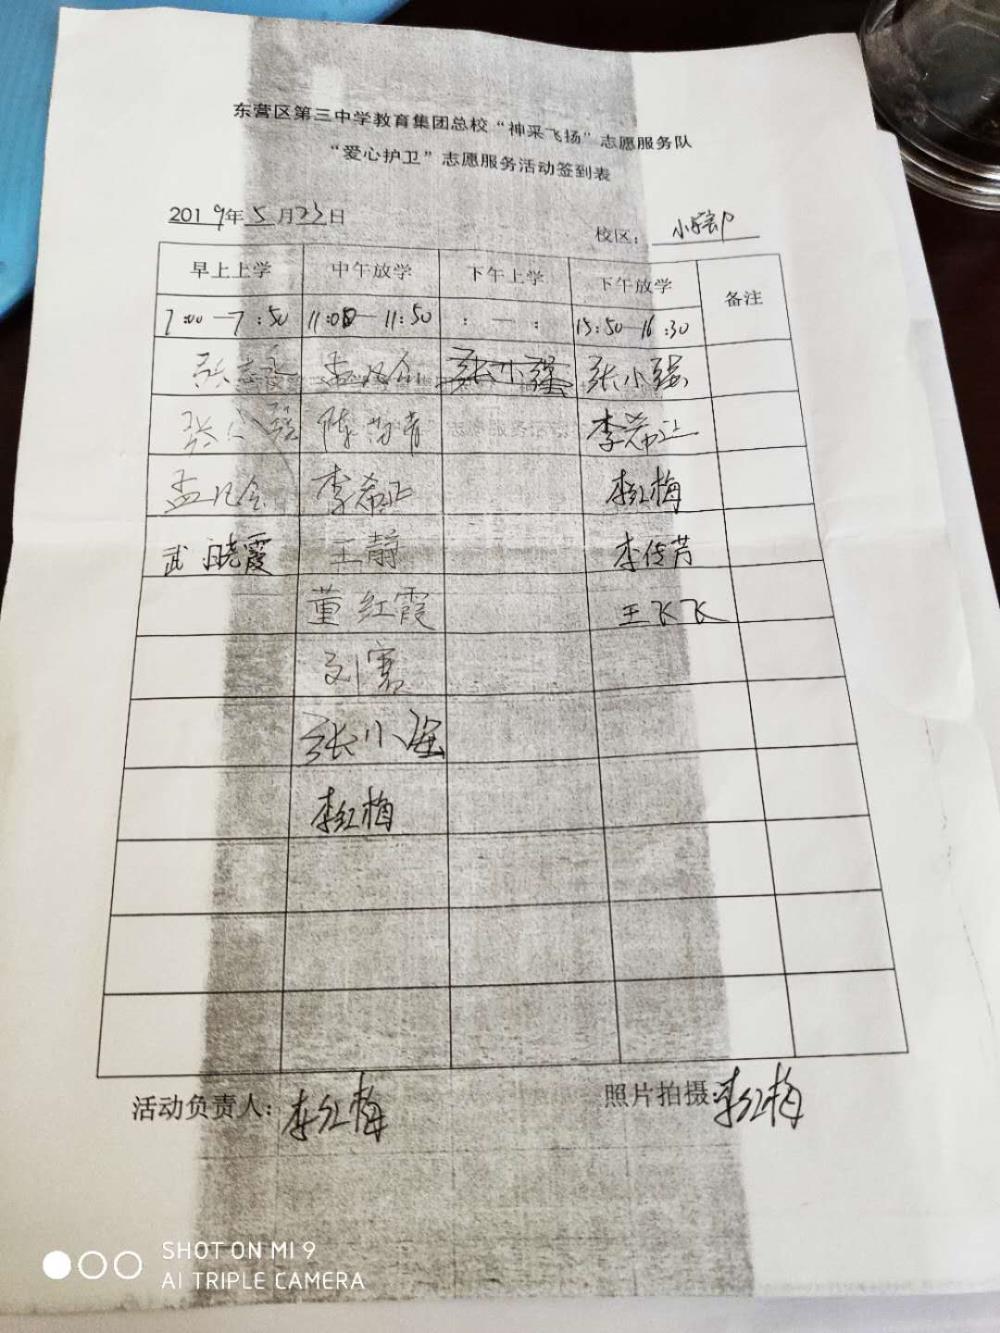 东营区第三中学教育集团总校“神采飞扬”志愿服务队
“爱心护卫”志愿服务活动签到表
2019年5月23日 校区：小学部
早上上学 中午放学 下午上学 下午放学 备注
7:00—7:50 11:00—11:50 :—: 15:50—16:30
张小强 张小强
李希正
孟凡会 李希正 李红梅
武晓霞 王静 李传芳
董红霞 王飞飞
刘寒
张小强
李红梅
活动负责人：李红梅 照片拍摄：李红梅
SHOT ON MI 9
AI TRIPLE CAMERA